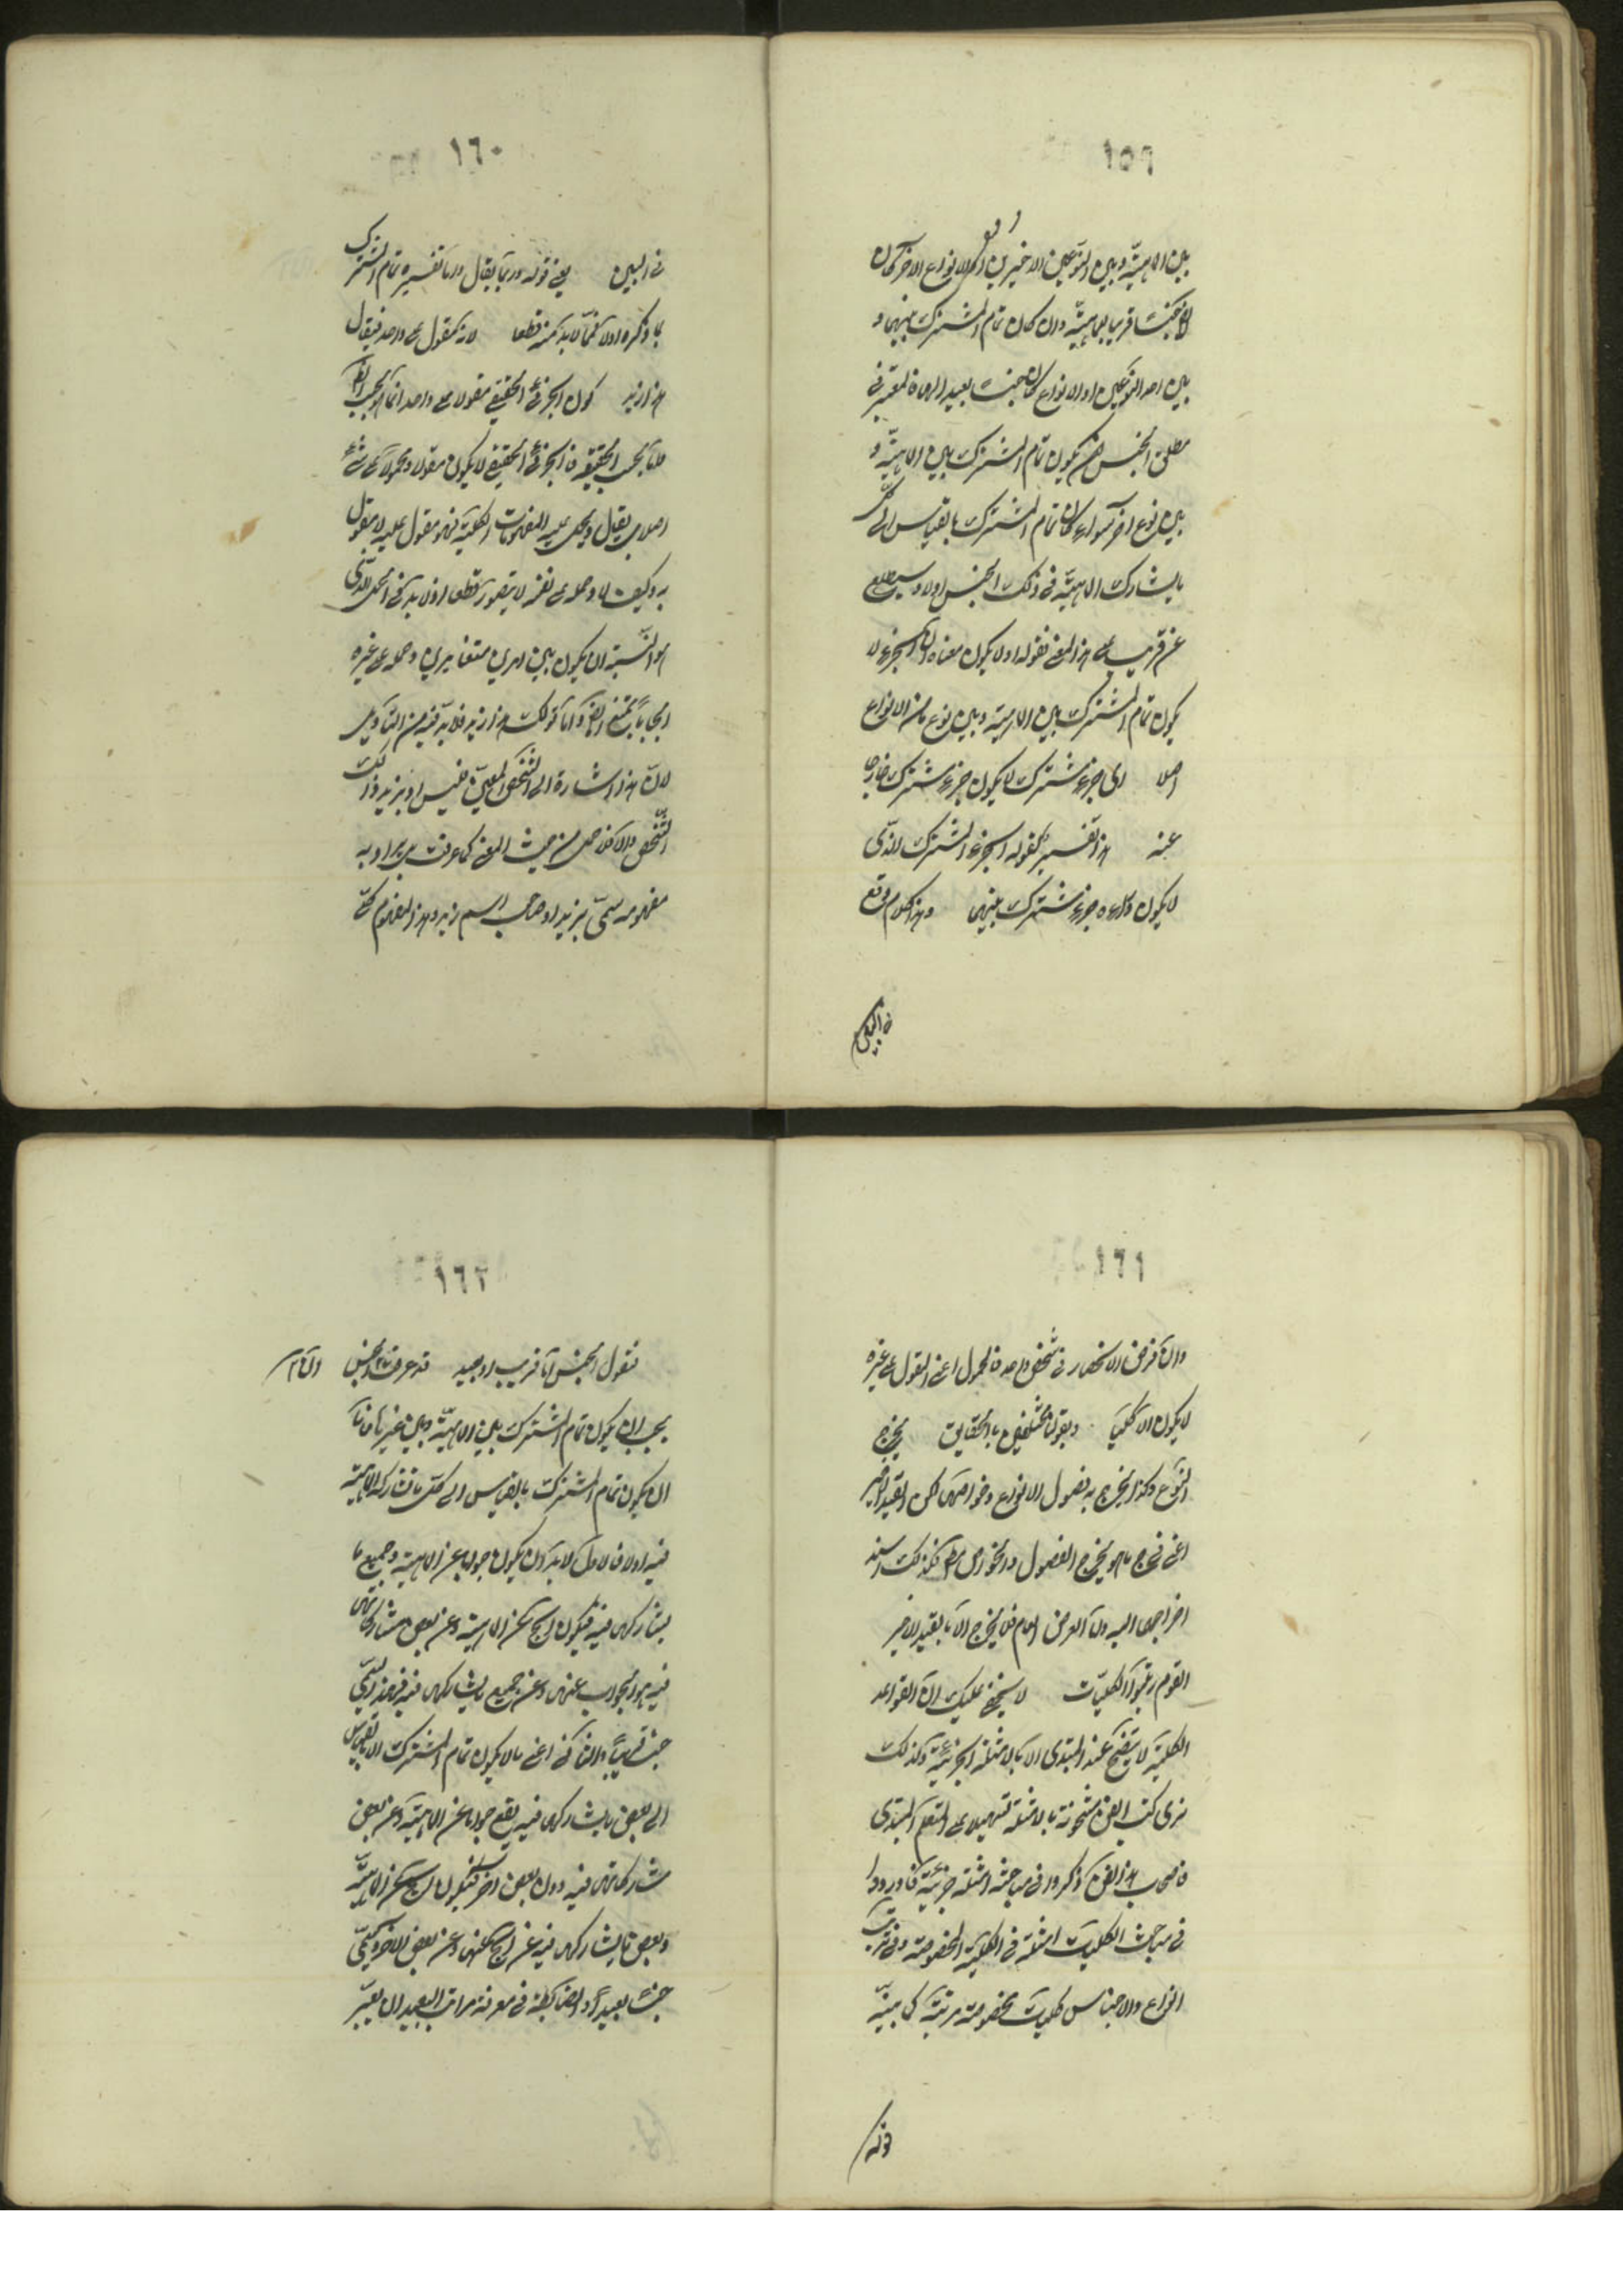 ١٥٩
بين الماهية وبين النوعين الاخيرين او الانواع الاخر كان
جنسا قريبا للماهية وان كان تمام المشترك بينها و
بين احد النوعين او الانواع كان جنسا بعيدا لها فالمعتبر في
مطلق الجنس ان يكون تمام المشترك بين الماهية و
بين نوع اخر سواء كان تمام المشترك بالقياس الى كل
ما يشارك الماهية في ذلك الجنس اولا وسيطلع
عن قريب على هذا المعنى فقوله او لا يكون معناه ان الجزء لا
يكون تمام المشترك بين الماهية وبين نوع ما من الانواع
اصلا اى جزء مشترك لا يكون جزء مشترك خارجا
عنه هذا تفسير لقوله الجزء المشترك الذى
لا يكون وراءه جزء مشترك بينهما وهذا كلام وقع
فى البين
١٦٠
فى البين يعنى قوله وربما يقال واما تفسيره تمام المشترك
بما ذكره اولا فمما لابد منه قطعا لانه مقول على واحد فيقال
هذا زيد كون الجزئى الحقيقى مقولا على واحد انما هو بحسب الظاهر
واما بحسب الحقيقة فالجزئى الحقيقى لا يكون مقولا ومحمولا على شئ
اصلا بل يقال ويحمل عليه المفهومات الكلية فهو مقول عليه لا مقول
به وكيف لا وحمله على نفسه لا يتصور قطعا اذ لابد فى الحمل الذى
هو النسبة ان يكون بين امرين متغايرين وحمله على غيره
ايجابا ممتنع ايضا واما قولك هذا زيد فلابد فيه من التأويل
لان هذا اشارة الى الشخص المعين فليس او بزيد ذلك
الشخص والا فلا حمل من حيث المعنى كما عرفت بل يراد به
مفهوم مسمى بزيد او صاحب اسم زيد وهذا المفهوم كلى
١٦١
وان فرض انحصاره فى شخص واحد فالمحمول اعنى المقول على غيره
لا يكون الا كليا وبقولنا مختلفين بالحقايق يخرج
النوع وكذا يخرج به فصول الانواع وخواصها لكن القيد الاخير
اعنى فى جواب ما هو يخرج الفصول والخواص مطلقا فلذلك اسند
اخراجها اليه واما العرض العام فلا يخرج الا بالقيد الاخير
القوم رتبوا الكليات لا يخفى عليك ان القواعد
الكلية لا يتضح عند المبتدى الا بالامثلة الجزئية ولذلك
ترى كتب الفن مشحونة بالامثلة تسهيلا على المتعلم المبتدى
فاصحاب هذا الفن ذكروا فى مباحثه امثلة جزئية فاوردوا
فى مباحث الكليات امثلة فى الكلية المخصوصة وفى ترتيب
انواع والاجناس كليات مخصوصة مرتبة كما بينه
قوله
١٦٢
فنقول الجنس اما قريب او بعيد قد عرفت ان الجنس
يجب ان يكون تمام المشترك بين الماهية وبين غيرها فاما
ان يكون تمام المشترك بالقياس الى كل ما تشاركه الماهية
فيه اولا فالاول لابد وان يكون جوابا عن الماهية وجميع ما
يشاركها فيه فيكون الجواب عن الماهية وعن بعض مشاركاتها
فيه هو الجواب عنها وعن جميع ما يشاركها فيه فهذا يسمى
جنسا قريبا والثانى اعنى ما لا يكون تمام المشترك الا بالقياس
الى بعض ما يشاركها فيه يقع جوابا عن الماهية وعن بعض
مشاركاتها فيه دون بعض اخر فيكون الجواب عن الماهية
وبعض ما يشاركها فيه غير الجواب عنها وعن بعض الاخر ويسمى
جنسا بعيدا والضابطة فى معرفة مراتب البعيد ان يعتبر